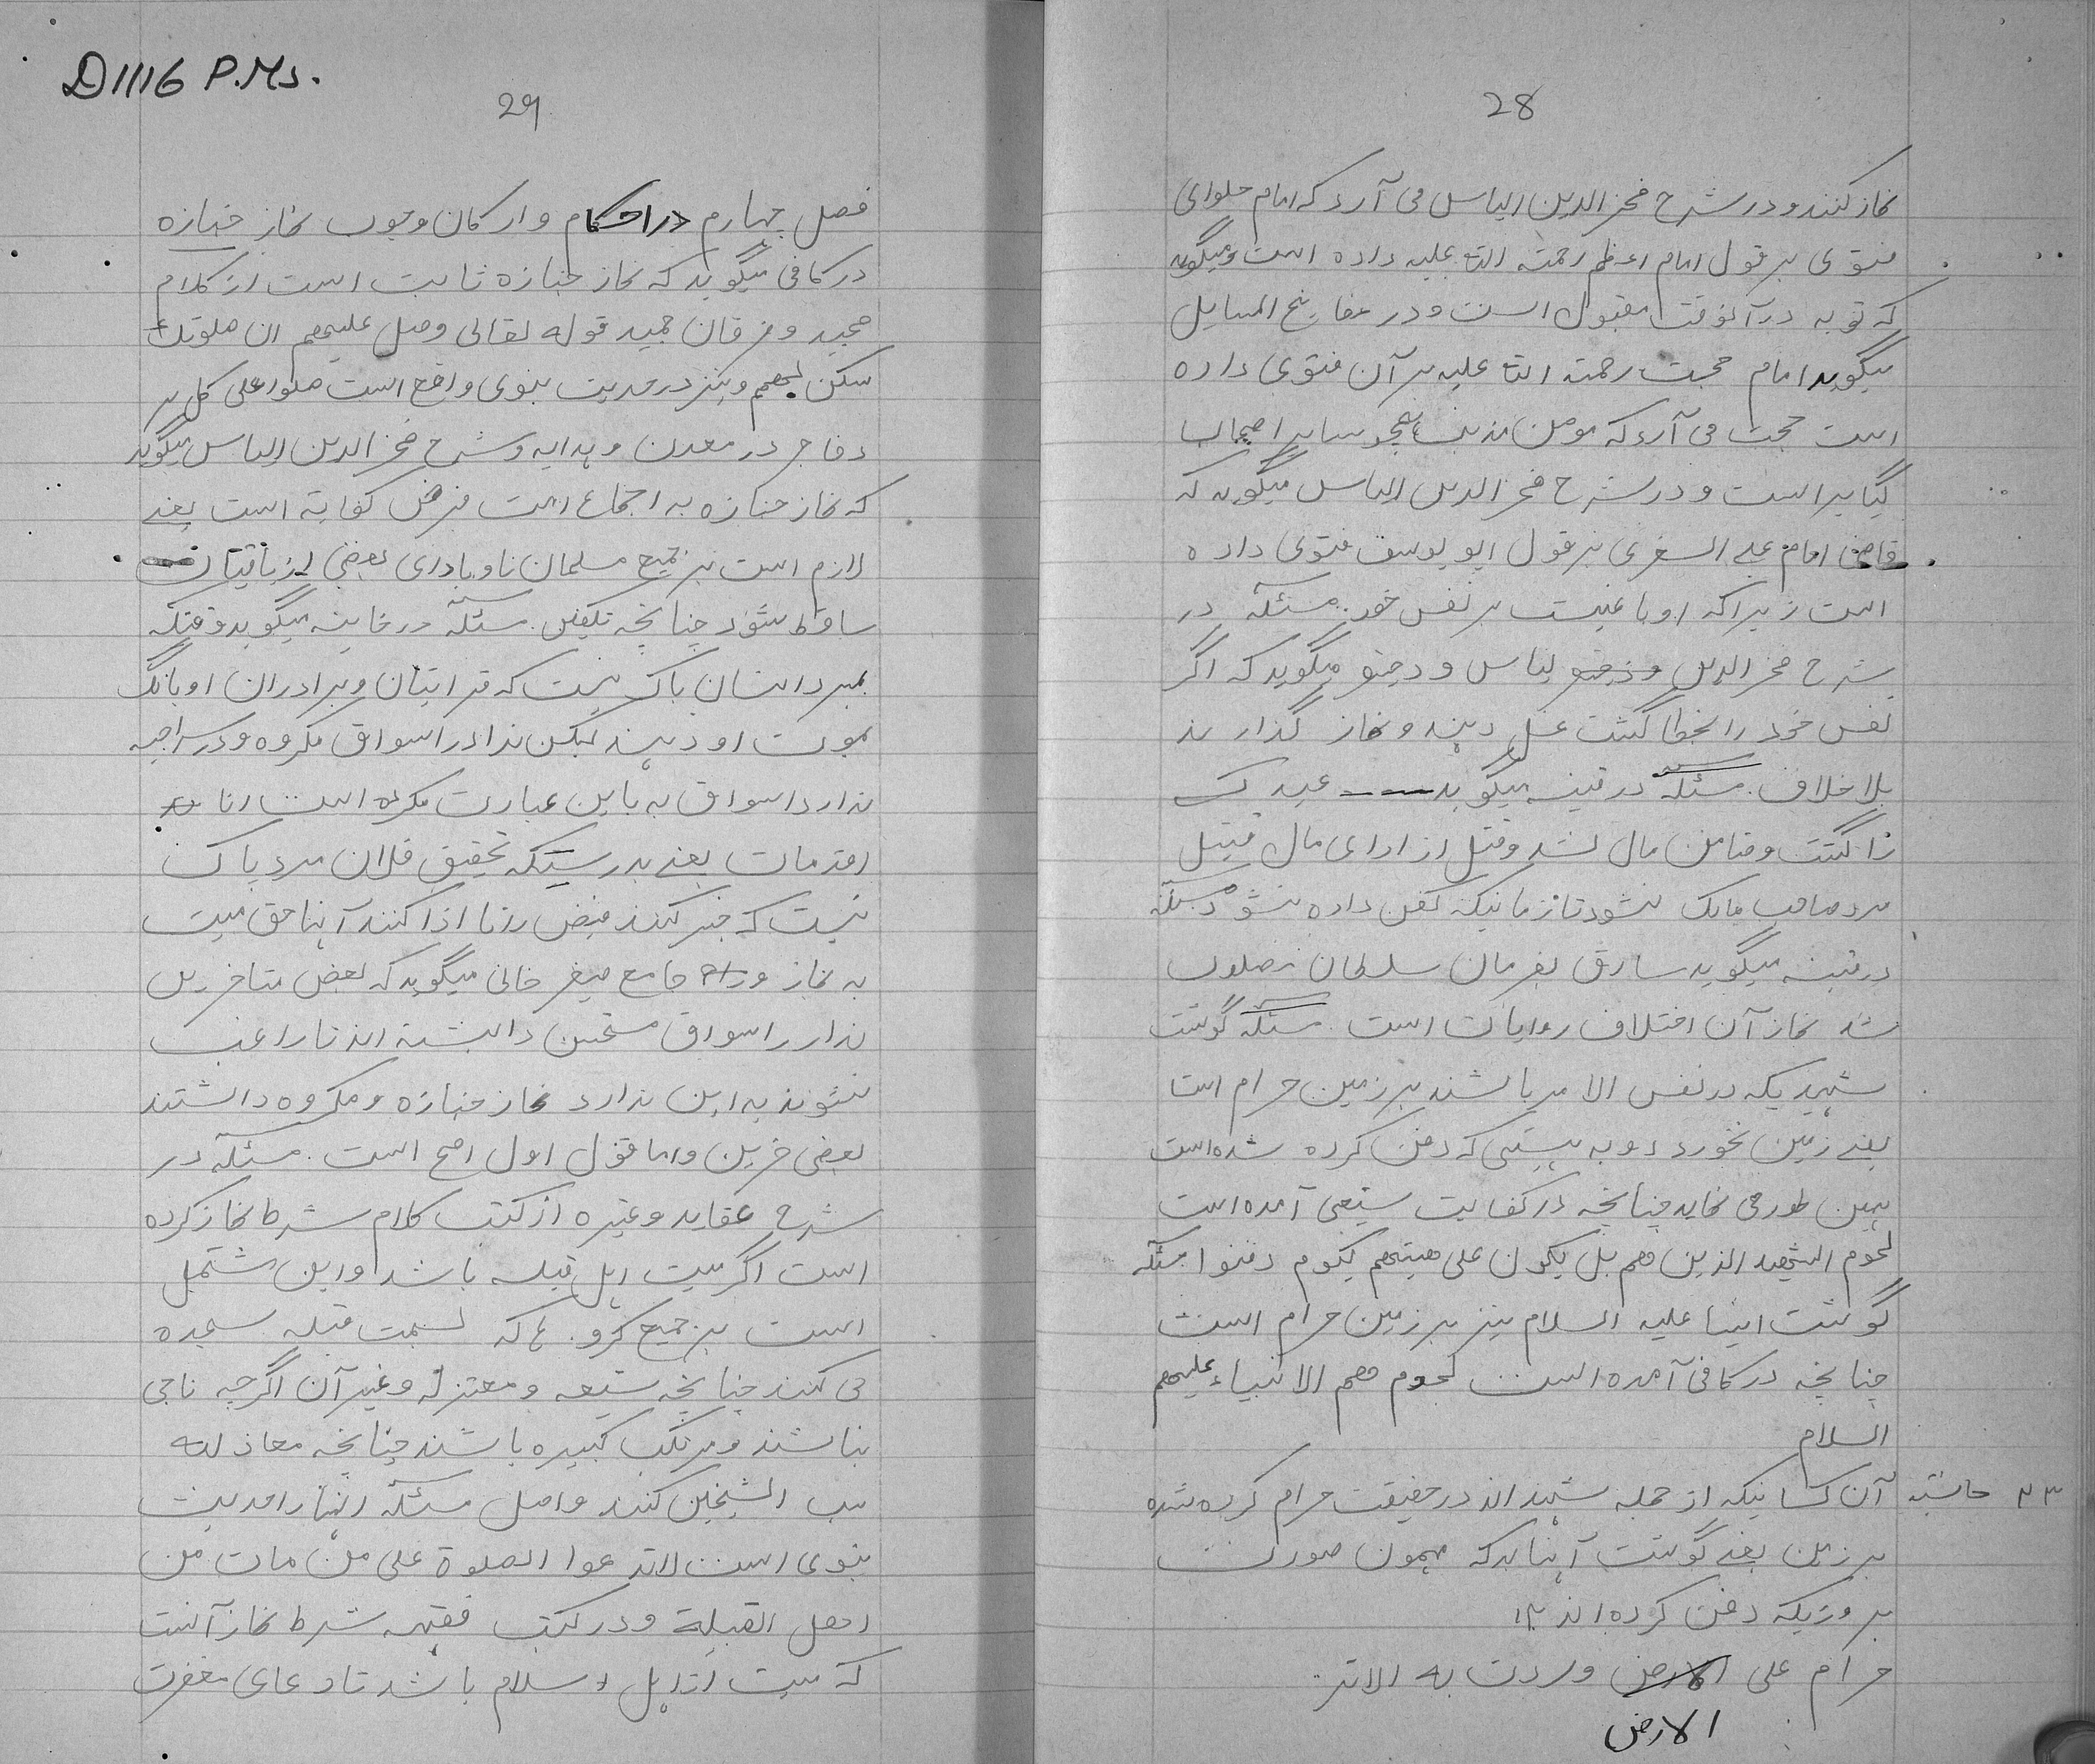 28
نماز کنند و در شرح فخر الدین الیاس می آرد که امام حلوای
فتوی بر قول امام اعظم رحمته الله علیه داده است و میگوید
که توبه در آنوقت مقبول است و در مفاتیح المسایل
میگوید امام حجت رحمته الله علیه بر آن فتوی داده
است حجت می آرد که مومن مذنب همچو سایر اصحاب
کبایر است و در شرح فخر الدین الیاس میگوید که
قاضی امام علی السغری بر قول ابو یوسف فتوی داده
است زیرا که او باغیست بر نفس خود. مسئلہ در
شرح فخر الدین لیاس و میگوید که اگر
نفس خود را بخطا کشت غسل دهند و نماز گذارند
بلا خلاف. مسئلہ در قنیه میگوید ---- عبد کسی
را کشت و ضامن مال شد و قبل از ادای مال قتیل
مرد صاحب مالک نشود تا زمانیکه کفن داده نشود مسئلہ
در قنیه میگوید سارق بفرمان سلطان مصلوب
شد نماز آن اختلاف روایات است. مسئلہ گوشت
شهیدیکه در نفس الامر باشند بر زمین حرام است
یعنے زمین نخورد و به هیئتی که دفن کرده شده است
همین طور می نماید چنانچه در کفایت شعبی آمده است
لحوم الشهید الذین هم بل یکون علی هیئتهم یکوم دفنوا مسئلہ
گوشت انبیا علیه السلام نیز بر زمین حرام است
چنانچه در کافی آمده است لحوم هم الانبیاء علیهم
السلام
۳۳ حاشیه آن کسانیکه از جمله شهید اند در حقیقت حرام کرده شده
بر زمین یعنے گوشت آنها بدرکه همون صورت
بروزیکه دفن کرده اند ۱۲
حرام علی الارض وردت به الاثر.
الارض
D1116 P.Ms.
29
فصل چهارم در احکام و ارکان وجوب نماز جنازه
در کافی میگوید که نماز جنازه ثابت است از کلام
مجید و فرقان حمید قوله تعالی وصل علیهم ان صلوتک
سکن لهم و نیز در حدیث نبوی واقع است صلوا علی کل بر
و فاجر در معدن و هدایه و شرح فخر الدین الیاس میگوید
که نماز جنازه به اجماع امت فرض کفایة است یعنے
لازم است بر جمیع مسلمانان و بادای بعضی از باقیان
ساقط شود چنانچه تکفین. مسئلہ در خانیه میگوید وقتیکه
بمیرد انسان باک نیست که قرابتان و برادران او بانگ
بموت او دهند لیکن ندا در اسواق مکروه و در سراجیه
ندا در اسواق به باین عبارت مکروه است انا
قد مات یعنے بدرستیکه تحقیق فلان مرد باک
نیست که خبر کنند بعض را تا ادا کنند آنها حق میت
به نماز و در جامع صغیر خانی میگوید که بعض متاخرین
ندا در اسواق مستحسن دانشته اند تا راغب
شوند به این ندا در نماز جنازه و مکروه دانشتند
بعضی خرین و اما قول اول اصح است. مسئلہ در
شرح عقاید و غیره از کتب کلام شرط نماز کرده
است اگر میت اهل قبله باشد و این مشتمل
است بر جمیع گرو. ها که بسمت قبله سجده
می کنند چنانچه شیعه و معتزله و غیر آن اگرچه ناجی
نباشند و مرتکب کبیره باشند چنانچه معاذ لله
سب الشیخین کنند و اصل مسئلہ اینها را حدیث
نبوی است لاتدعوا الصلوة علی من مات من
اهل القبلة و در کتب فقهه شرط نماز آنست
که میت از اهل اسلام باشد تا دعای مغفرت